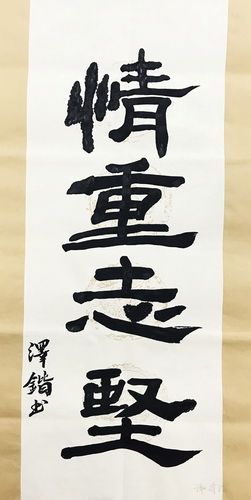 情重志堅
澤鍇书